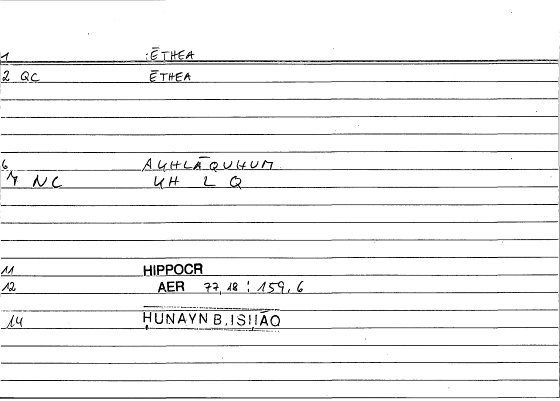 1 :ĒTHEA
2 QC ĒTHEA
6 AUHLĀQUHUM
7 NC UH L Q
11 HIPPOCR
12 AER 77,18 : 159,6
14 ḤUNAYN B.ISḤĀQ